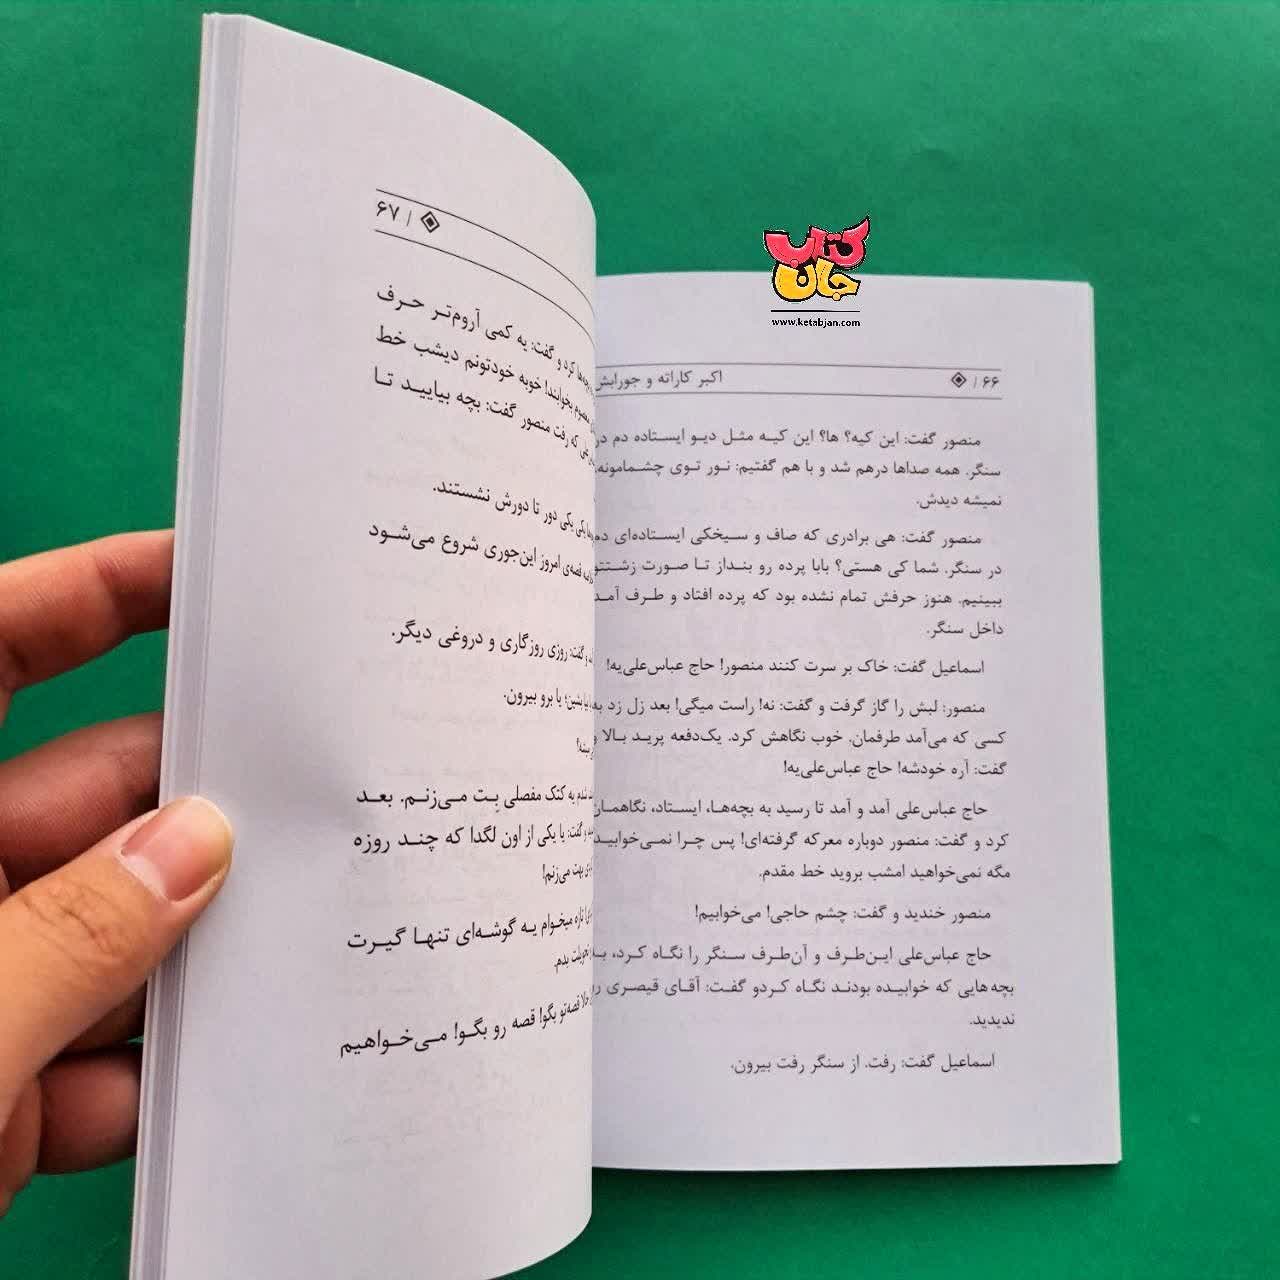 کتاب جان
www.ketabjan.com
۶۶ / اکبر کاراته و جورابش
منصور گفت: این کیه؟ ها؟ این کیه مثل دیو ایستاده دم در
سنگر. همه صداها درهم شد و با هم گفتیم: نور توی چشمامونه،
نمیشه دیدش.
منصور گفت: هی برادری که صاف و سیخکی ایستاده‌ای دم
در سنگر. شما کی هستی؟ بابا پرده رو بنداز تا صورت زشتتو
ببینیم. هنوز حرفش تمام نشده بود که پرده افتاد و طرف آمد
داخل سنگر.
اسماعیل گفت: خاک بر سرت کنند منصور! حاج عباس‌علی‌یه!
منصور: لبش را گاز گرفت و گفت: نه! راست میگی! بعد زل زد به
کسی که می‌آمد طرفمان. خوب نگاهش کرد. یک‌دفعه پرید بالا و
گفت: آره خودشه! حاج عباس‌علی‌یه!
حاج عباس‌علی آمد و آمد تا رسید به بچه‌ها، ایستاد، نگاهمان
کرد و گفت: منصور دوباره معرکه گرفته‌ای! پس چرا نمی‌خوابید
مگه نمی‌خواهید امشب بروید خط مقدم.
منصور خندید و گفت: چشم حاجی! می‌خوابیم!
حاج عباس‌علی این‌طرف و آن‌طرف سنگر را نگاه کرد، به
بچه‌هایی که خوابیده بودند نگاه کردو گفت: آقای قیصری رو
ندیدید.
اسماعیل گفت: رفت. از سنگر رفت بیرون.
/ ۶۷
کرد و گفت: یه کمی آروم‌تر حرف
معصوم بخوابند! خوبه خودتونم دیشب خط
که رفت منصور گفت: بچه بیایید تا
یکی یکی دور تا دورش نشستند.
قصه‌ی امروز این‌جوری شروع می‌شود
و گفت: روزی روزگاری و دروغی دیگر.
بیا بشین؛ یا برو بیرون.
بسته!
شدم یه کتک مفصلی بِت می‌زنم. بعد
و گفت: یا یکی از اون لگدا که چند روزه
بهت می‌زنم!
تازه میخوام یه گوشه‌ای تنها گیرت
تحویلت بدم.
حالا قصه‌تو بگو! قصه رو بگو! می‌خواهیم